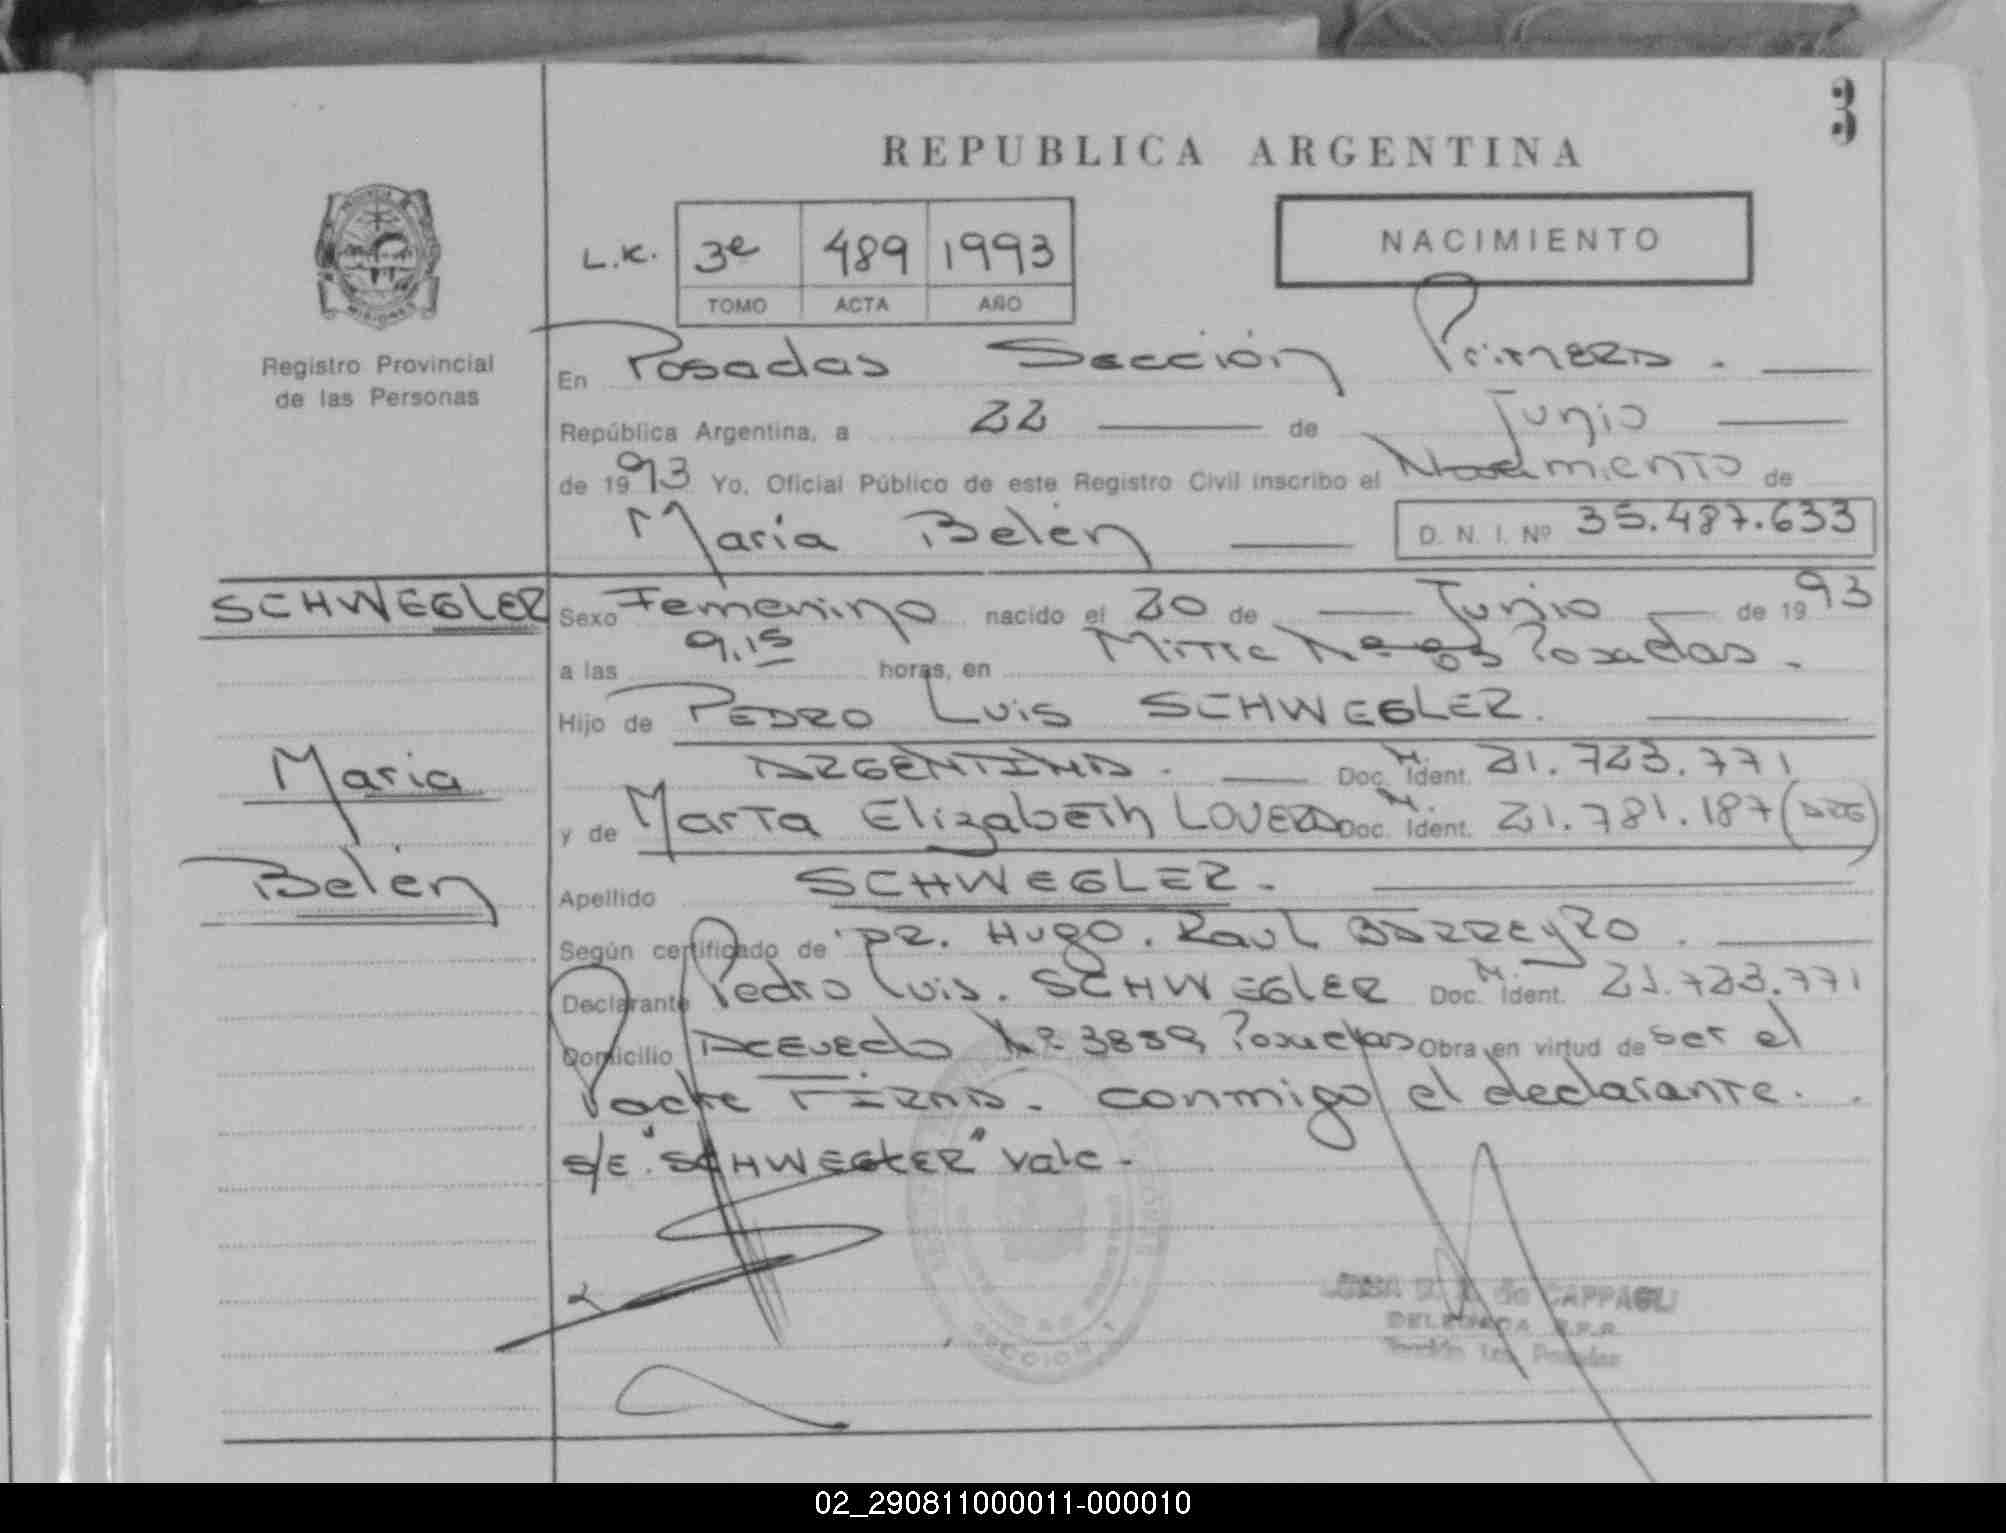 3
REPUBLICA ARGENTINA
NACIMIENTO
L.K. 3e 489 1993
TOMO ACTA AÑO
MISIONES
Registro Provincial
de las Personas
En Posadas Sección Primera.
República Argentina, a 22 de Junio
de 1993 Yo, Oficial Público de este Registro Civil inscribo el Nacimiento de
María Belén D. N. I. Nº 35.487.633
SCHWEGLER
María
Belén
Sexo Femenino nacido el 20 de Junio de 1993
a las 9.15 horas, en Mitre Nº 83 Posadas.
Hijo de PEDRO Luis SCHWEGLER.
ARGENTINA. Doc. N. Ident. 21.723.771
y de Marta Elizabeth LOVERA Doc. N. Ident. 21.781.187 (ARG)
Apellido SCHWEGLER.
Según certificado de DR. Hugo. Raul BARREYRO.
Declarante Pedro Luis. SCHWEGLER Doc. N. Ident. 21.723.771
Domicilio Acevedo Nº 3889 Posadas Obra en virtud de ser el
Padre FIRMA. conmigo el declarante.
s/E "SCHWEGLER" vale.
SECCION 1
de CAPPAGLI
02_290811000011-000010